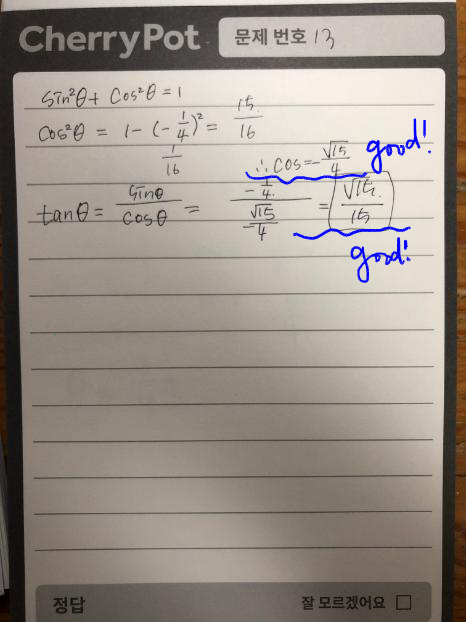 CherryPot 문제 번호 13
sin²θ + cos²θ = 1
cos²θ = 1 - (-1/4)² = 15/16
1/16
∴ cos = -√15/4 good!
tanθ = sinθ/cosθ = (-1/4)/(-√15/4) = √15/15
good!
정답 잘 모르겠어요